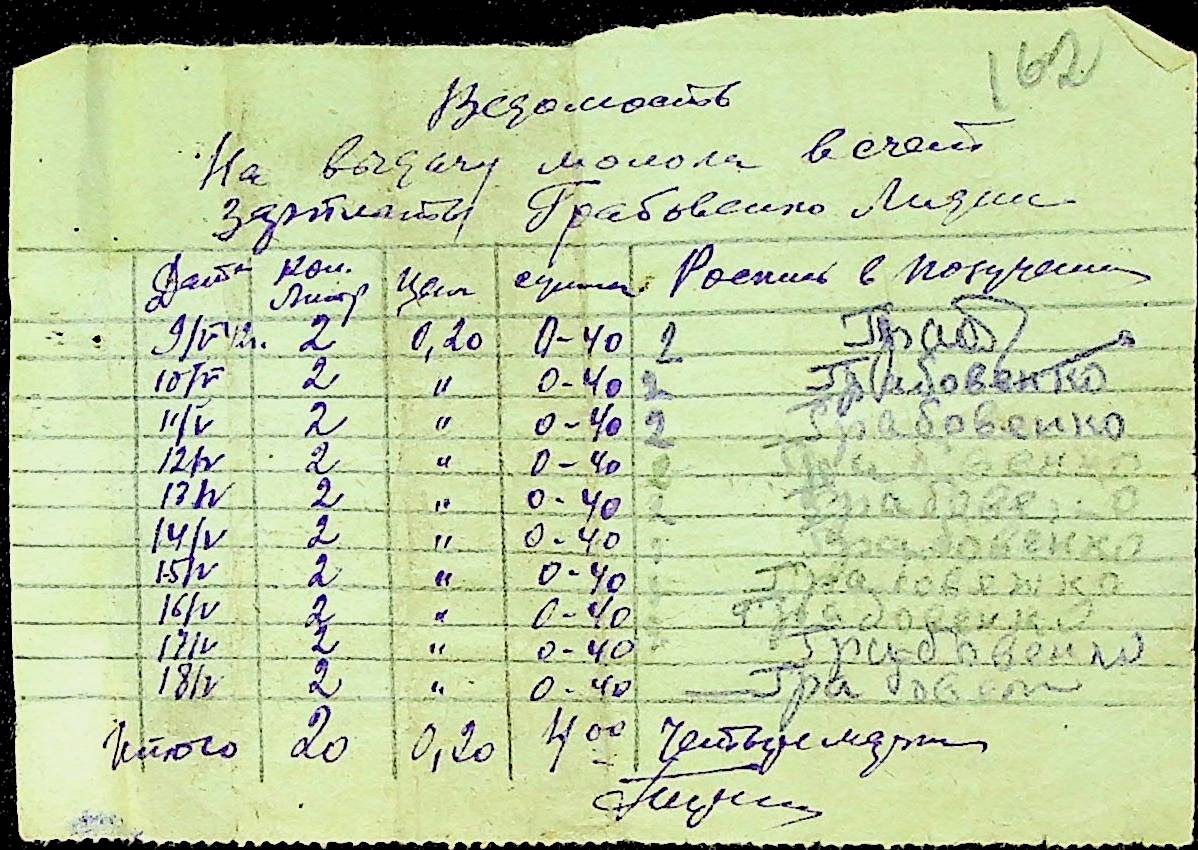 162
Ведомость
На выдачу молока в счет
Зарплаты Грабовенко Лидии
Дата Кол. Литр Цена сумма Роспись в получении
9/V 42г. 2 0,20 0-40 2 Граб
10/V 2 " 0-40 2 Грабовенко
11/V 2 " 0-40 2 Грабовенко
12/V 2 " 0-40 Грабовенко
13/V 2 " 0-40 2 Грабовенко
14/V 2 " 0-40 Грабовенко
15/V 2 " 0-40 Грабовенко
16/V 2 " 0-40 Грабовенко
17/V 2 " 0-40 Грабовенко
18/V 2 " 0-40 Грабовен
Итого 20 0,20 4 00 Четыре марки